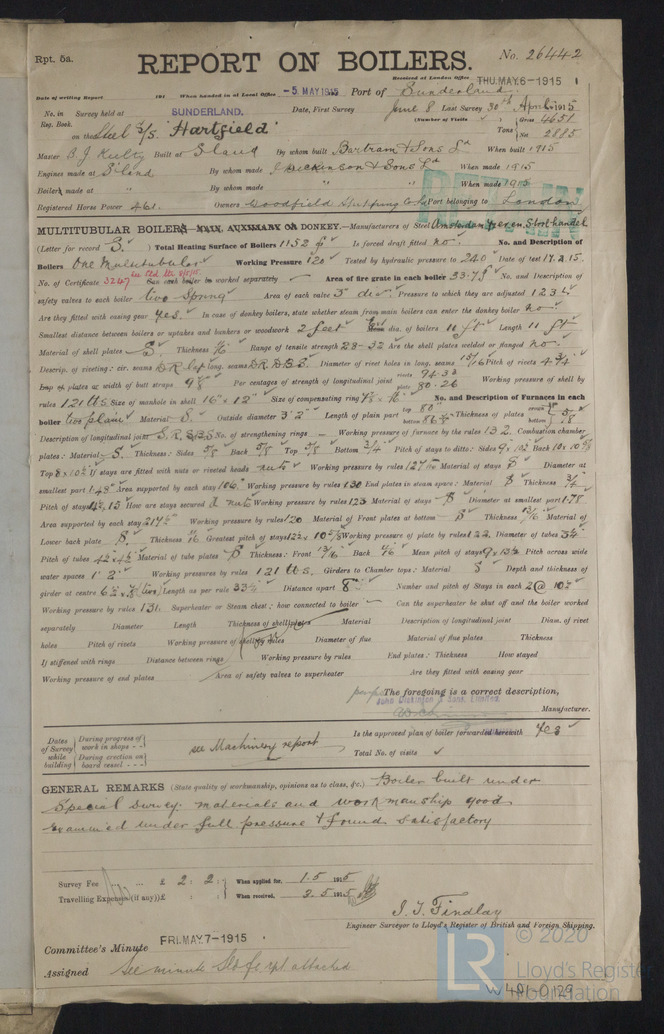 Rpt. 5a.
REPORT ON BOILERS.
No. 26442
Received at London Office THU. MAY. 6 - 1915
Date of writing Report 191 When handed in at Local Office - 5. MAY 1915 Port of Sunderland.
No. in Survey held at SUNDERLAND. Date, First Survey June 8 Last Survey 30th April 1915
Reg. Book. (Number of Visits ) Gross 4651
on the Steel S/S. "Hartfield" Tons Net 2885
Master B. J. Built at S'land By whom built Bartram & Sons Ld When built 1915
Engines made at S'land By whom made J Dickinson & Sons Ld When made 1915
Boilers made at " By whom made " When made 1915
Registered Horse Power 461. Owners Woodfield Shipping Co Ld Port belonging to London
MULTITUBULAR BOILERS MAIN, AUXILIARY OR DONKEY.—Manufacturers of Steel Amsterdam Yzer en. Staalhandel
(Letter for record S. ) Total Heating Surface of Boilers 1152 Is forced draft fitted no. No. and Description of
Boilers One Multitubular Working Pressure 120 Tested by hydraulic pressure to 240 Date of test 17.2.15.
No. of Certificate 3247 Can each boiler be worked separately Area of fire grate in each boiler 33.75 No. and Description of
safety valves to each boiler two Spring Area of each valve 3" dia. Pressure to which they are adjusted 123
Are they fitted with easing gear yes. In case of donkey boilers, state whether steam from main boilers can enter the donkey boiler no.
Smallest distance between boilers or uptakes and bunkers or woodwork 2 feet Mean dia. of boilers 11 ft Length 11 ft
Material of shell plates S. Thickness Range of tensile strength 28-32 Are the shell plates welded or flanged no.
Descrip. of riveting: cir. seams D R lap long. seams D.R.D.B.S. Diameter of rivet holes in long. seams 15/16 Pitch of rivets 4 3/4
Lap of plates or width of butt straps 9 5/8 Per centages of strength of longitudinal joint rivets 94.33 plate 80.26 Working pressure of shell by
rules 121 lbs Size of manhole in shell 16" x 12" Size of compensating ring No. and Description of Furnaces in each
boiler two plain Material S. Outside diameter 3' 2" Length of plain part top 80" bottom Thickness of plates crown bottom 5/8
Description of longitudinal joint No. of strengthening rings — Working pressure of furnace by the rules 132 Combustion chamber
plates: Material S. Thickness: Sides 5/8 Back 5/8 Top 5/8 Bottom 3/4 Pitch of stays to ditto: Sides Back
Top If stays are fitted with nuts or riveted heads nuts Working pressure by rules 127 Material of stays S Diameter at
smallest part 1.48" Area supported by each stay 106" Working pressure by rules 130 End plates in steam space: Material S Thickness
Pitch of stays How are stays secured d nuts Working pressure by rules 123 Material of stays S Diameter at smallest part 1.78
Area supported by each stay Working pressure by rules 120 Material of Front plates at bottom S Thickness 13/16 Material of
Lower back plate S. Thickness Greatest pitch of stays Working pressure of plate by rules 122 Diameter of tubes 3 1/4
Pitch of tubes Material of tube plates S Thickness: Front 13/16 Back Mean pitch of stays Pitch across wide
water spaces 1' 2" Working pressures by rules 121 lbs. Girders to Chamber tops: Material S Depth and thickness of
girder at centre Length as per rule 33 1/2 Distance apart 8" Number and pitch of Stays in each
Working pressure by rules 131. Superheater or Steam chest; how connected to boiler — Can the superheater be shut off and the boiler worked
separately Diameter Length Thickness of shell plates Material Description of longitudinal joint Diam. of rivet
holes Pitch of rivets Working pressure of shell by rules Diameter of flue Material of flue plates Thickness
If stiffened with rings Distance between rings Working pressure by rules End plates: Thickness How stayed
Working pressure of end plates Area of safety valves to superheater Are they fitted with easing gear
The foregoing is a correct description,
John Dickinson & Sons, Limited.
Manufacturer.
Dates of Survey while building During progress of work in shops - - During erection on board vessel - - - see Machinery report
Is the approved plan of boiler forwarded herewith Yes
Total No. of visits
GENERAL REMARKS (State quality of workmanship, opinions as to class, &c.) Boiler built under
Special Survey. materials and workmanship good
Examined under full pressure & found satisfactory
Survey Fee ... ... £ 2 : 2 : When applied for, 1.5 1915
Travelling Expenses (if any) £ : : When received, 3.5.1915
J. T. Findlay
Engineer Surveyor to Lloyd's Register of British and Foreign Shipping.
Committee's Minute FRI. MAY. 7 - 1915
Assigned See minute rpt attached
© 2020
LR
Lloyd's Register
Foundation
W401-0129